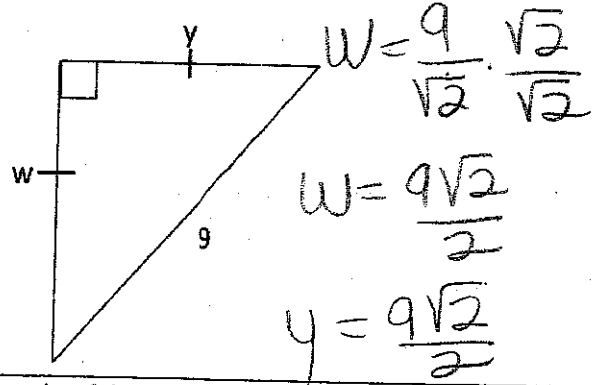 y
w
9
W = 9/√2 · √2/√2
W = 9√2/2
y = 9√2/2